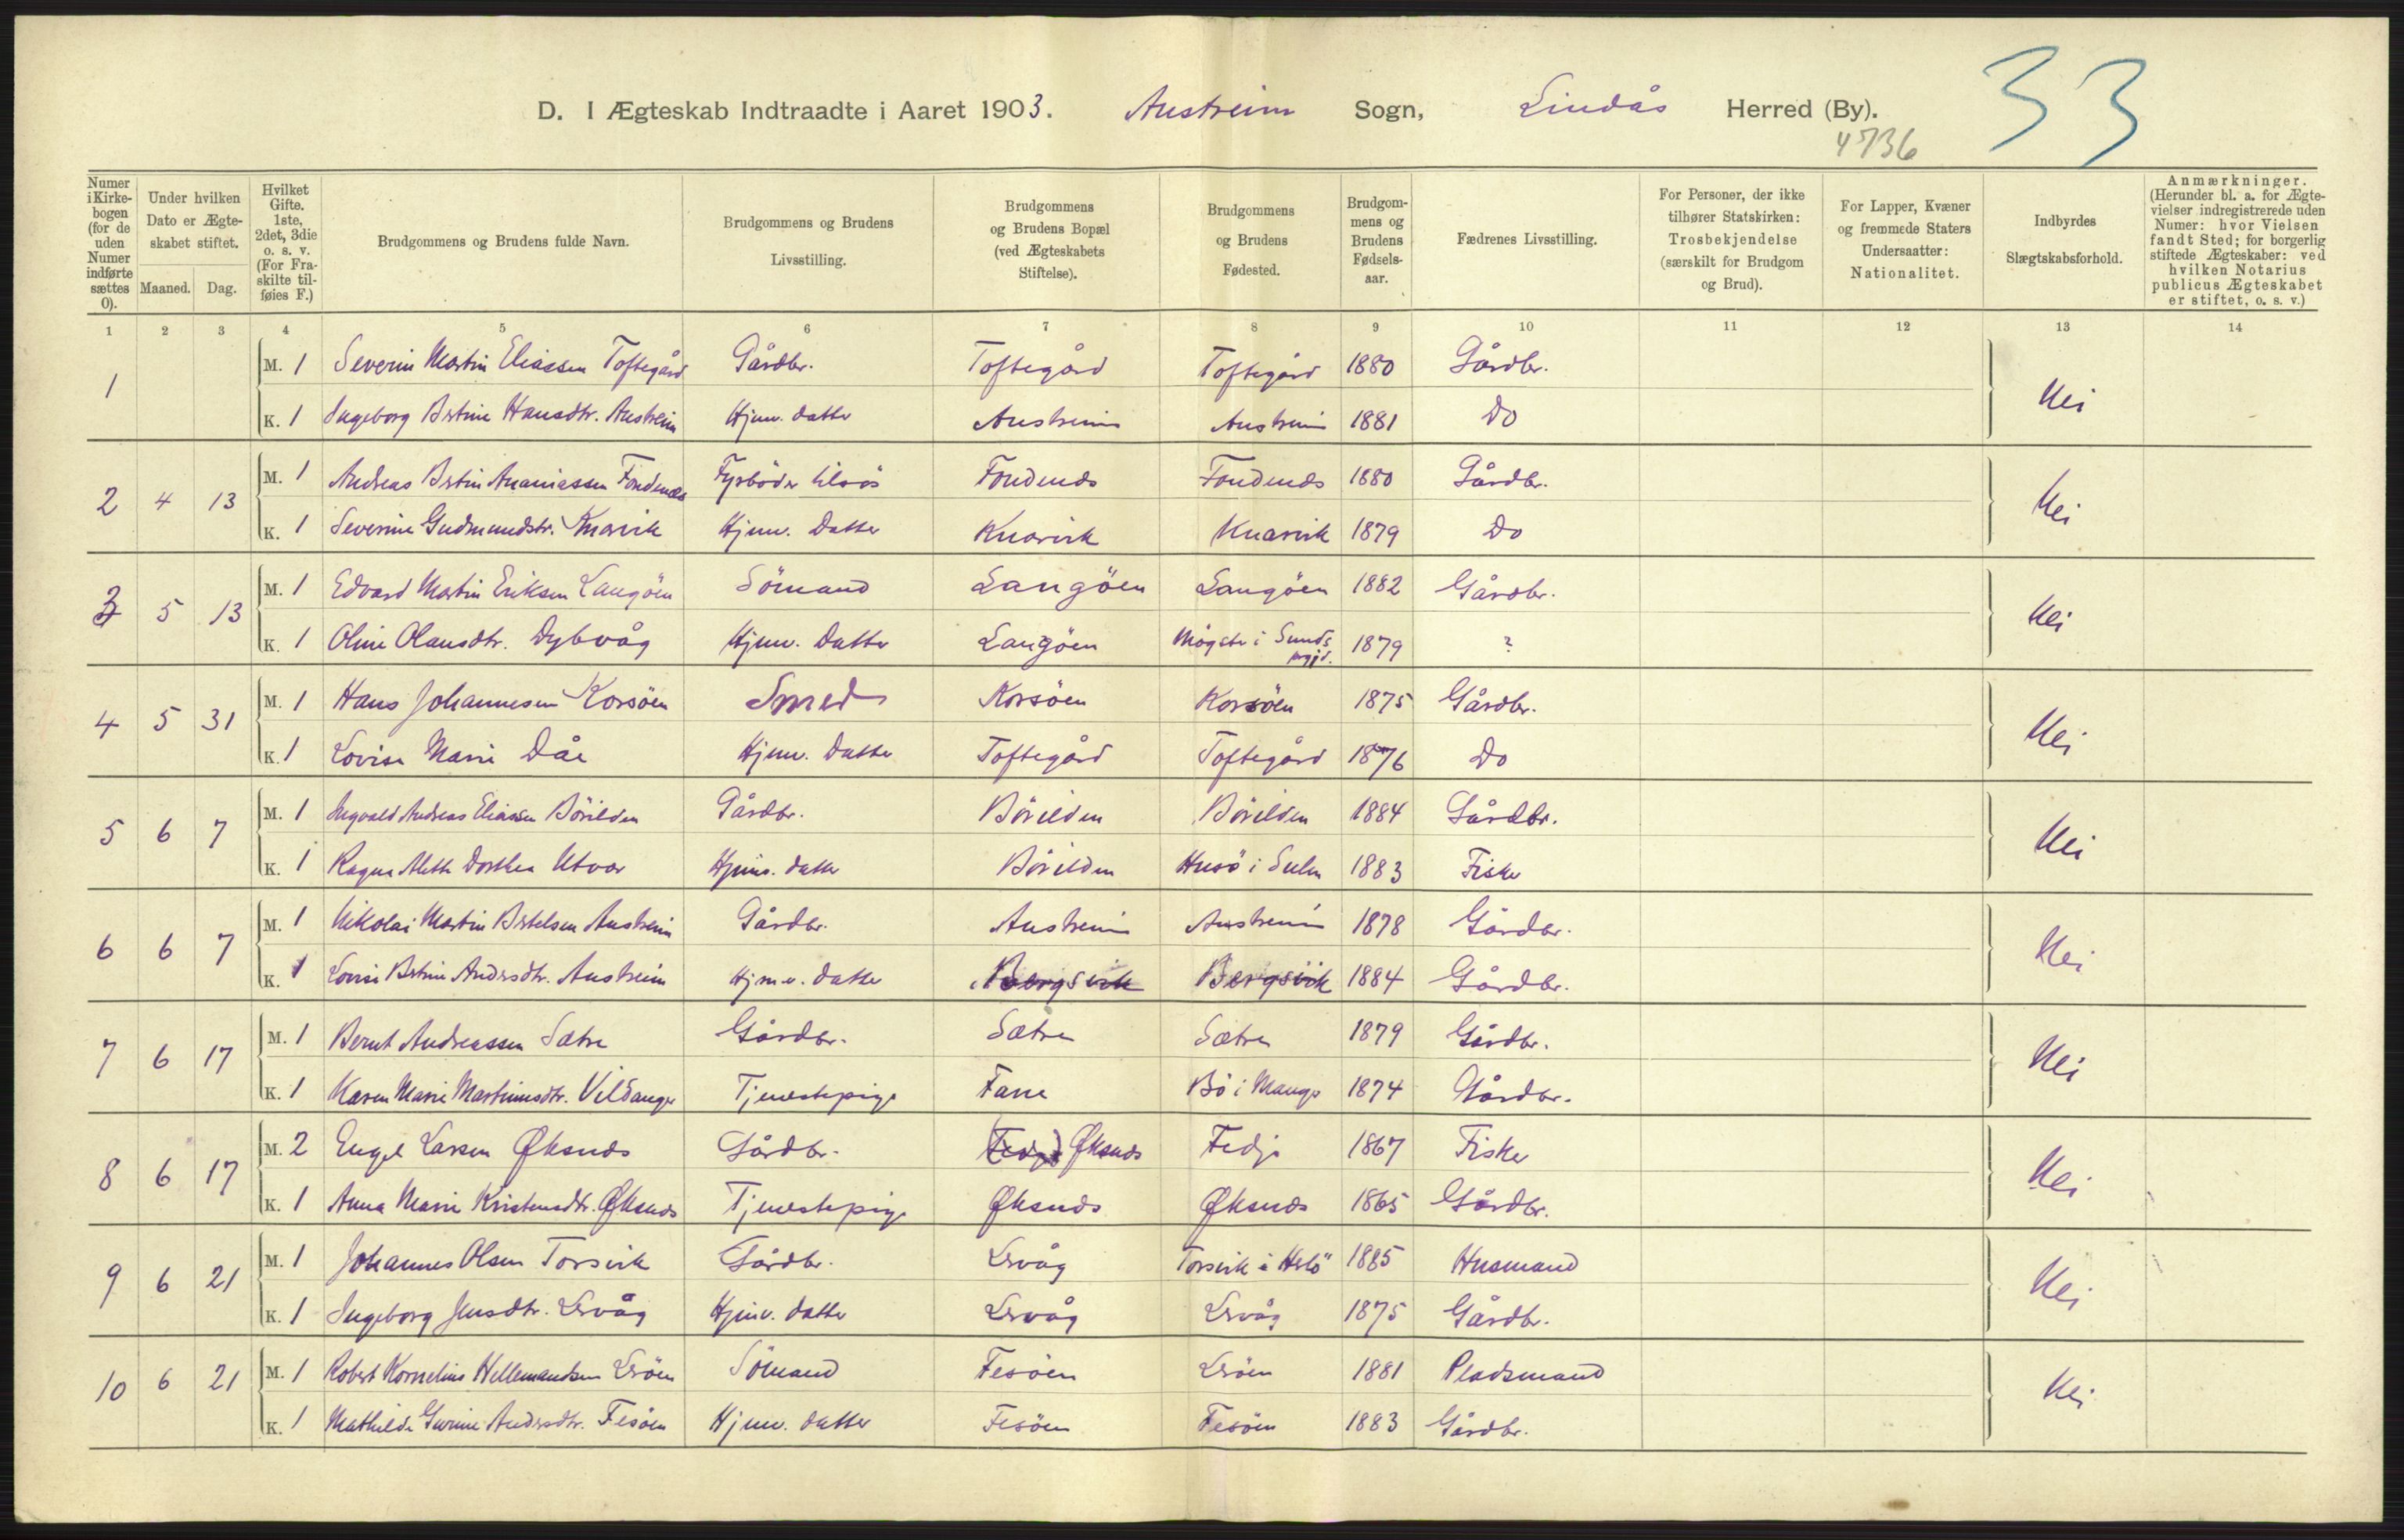 33
D. I Ægteskab Indtraadte i Aaret 1903. Austreim Sogn, Lindås Herred (By).
4736
Numer i Kirkebogen (for de uden Numer indførte sættes 0). Under hvilken Dato er Ægteskabet stiftet. Maaned. Dag. Hvilket Gifte. 1ste, 2det, 3die o. s. v. (For Fraskilte tilføies F.) Brudgommens og Brudens fulde Navn. Brudgommens og Brudens Livsstilling. Brudgommens og Brudens Bopæl (ved Ægteskabets Stiftelse). Brudgommens og Brudens Fødested. Brudgommens og Brudens Fødselsaar. Fædrenes Livsstilling. For Personer, der ikke tilhører Statskirken: Trosbekjendelse (særskilt for Brudgom og Brud). For Lapper, Kvæner og fremmede Staters Undersaatter: Nationalitet. Indbyrdes Slægtskabsforhold. Anmærkninger. (Herunder bl. a. for Ægtevielser indregistrerede uden Numer: hvor Vielsen fandt Sted; for borgerlig stiftede Ægteskaber: ved hvilken Notarius publicus Ægteskabet er stiftet, o. s. v.)
1 2 3 4 5 6 7 8 9 10 11 12 13 14
1 M. 1 Severin Martin Eliassen Toftegård Gårdbr. Toftegård Toftegård 1880 Gårdbr. Nei
K. 1 Ingeborg Bertine Hansdtr. Austreim Hjmv. datter Austreim Austreim 1881 Do
2 4 13 M. 1 Andreas Bertin Ananiassen Fondenes Fyrbøder tilsøs Fondenes Fondenes 1880 Gårdbr. Nei
K. 1 Severine Gudmundsdtr. Knarvik Hjmv. Datter Knarvik Knarvik 1879 Do
3 5 13 M. 1 Edvard Martin Eriksen Langöen Sömand Langöen Langöen 1882 Gårdbr. Nei
K. 1 Oline Olausdtr. Dybvåg Hjmv. Datter Langöen Møgster i Sunds prgjd. 1879 ?
4 5 31 M. 1 Hans Johannesen Korsöen Smed Korsöen Korsöen 1875 Gårdbr. Nei
K. 1 Lovise Marie Dåe Hjmv. Datter Toftegård Toftegård 1876 Do
5 6 7 M. 1 Ingvald Andreas Eliassen Børilden Gårdbr. Børilden Børilden 1884 Gårdbr. Nei
K. 1 Ragna Alette Dorthea Utvær Hjmv. datter Børilden Husö i Sulen 1883 Fisker
6 6 7 M. 1 Nikolai Martin Bertelsen Austreim Gårdbr. Austreim Austreim 1878 Gårdbr. Nei
K. 1 Lovise Bertine Andersdtr. Austreim Hjmv. datter Bergsvik Bergsvik 1884 Gårdbr.
7 6 17 M. 1 Bernt Andreassen Sætre Gårdbr. Sætre Sætre 1879 Gårdbr. Nei
K. 1 Karen Marie Martinusdtr. Vildanger Tjenestepige Fanne Bö i Manger 1874 Gårdbr.
8 6 17 M. 2 Engel Larsen Øksnes Gårdbr. (Fedje) Øksnes Fedje 1867 Fisker Nei
K. 1 Anna Marie Kristensdtr. Øksnes Tjenestepige Øksnes Øksnes 1865 Gårdbr.
9 6 21 M. 1 Johannes Olsen Torsvik Gårdbr. Lervåg Torsvik i Herlö 1885 Husmand Nei
K. 1 Ingeborg Jensdtr. Lervåg Hjmv. datter Lervåg Lervåg 1875 Gårdbr.
10 6 21 M. 1 Robert Kornelius Hellemandsen Leröen Sömand Fesöen Leröen 1881 Pladsmand Nei
K. 1 Mathilde Gurine Andersdtr. Fesöen Hjmv. datter Fesöen Fesöen 1883 Gårdbr.